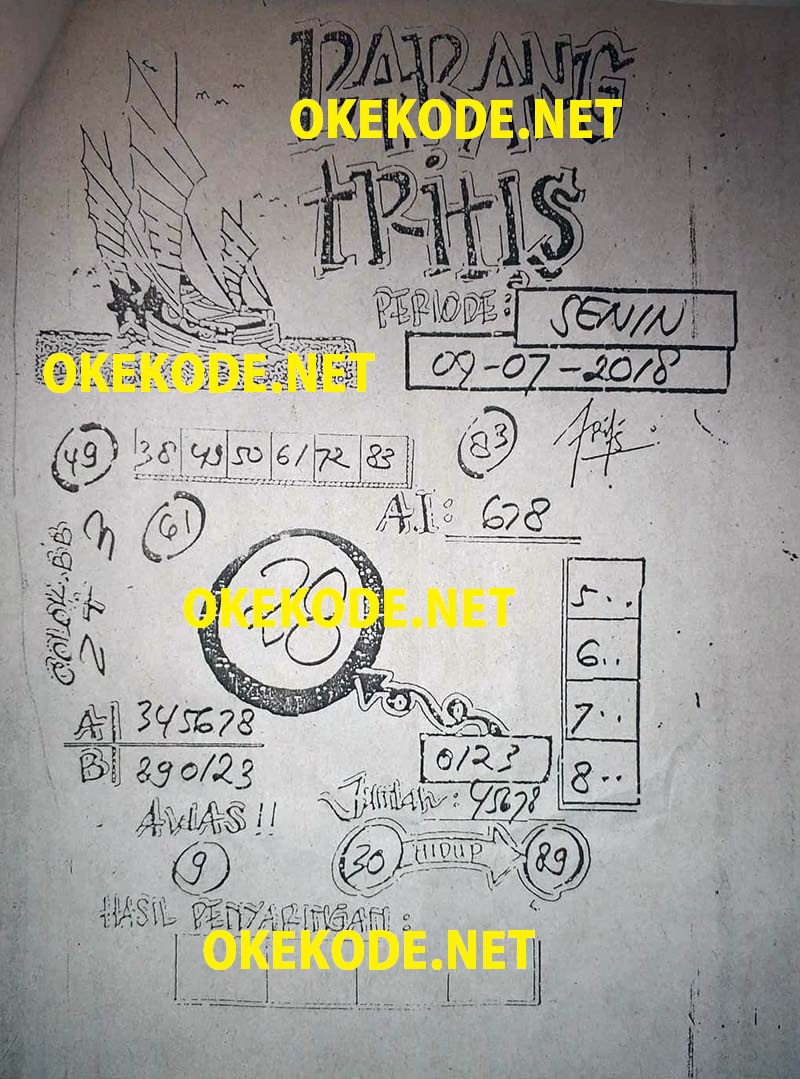 PARANG
OKEKODE.NET
TRITIS
PERIODE: SENIN
09-07-2018
OKEKODE.NET
49 38 49 50 61 72 83 83 Tritis
61 AI: 678
COLOK.BB
OKEKODE.NET
5..
6..
7..
8..
A 345678
B 890123
0123
Jumlah: 45678
AWAS!!
9 30 HIDUP 89
HASIL PENYARINGAN:
OKEKODE.NET